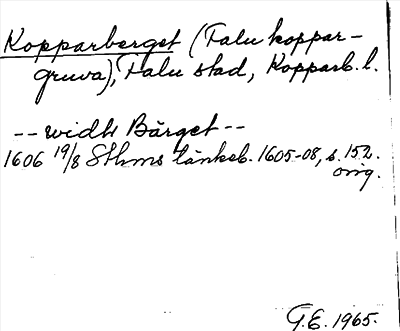 Kopparberget (Falu koppar-
gruva), Falu stad, Kopparb. l.
-- widh Bärget --
1606 19/8 Sthms tänkeb. 1605-08, s. 152.
orig.
G.E. 1965.